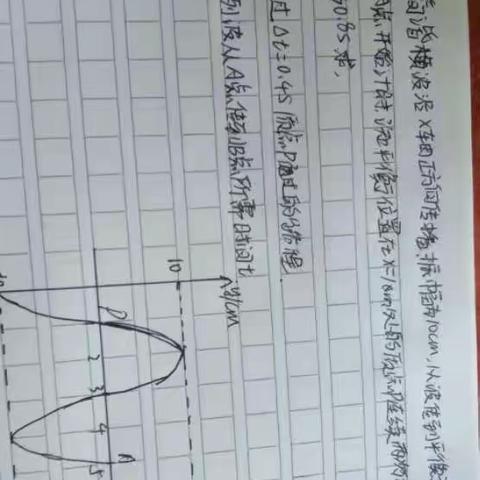 间谐横波沿x轴的正方向传播,振幅为10cm,从波传到平衡
点开始计时,该平衡位置在x=1cm处的质点P连续两次
0.8s求,
过Δt=0.4s质点P通过的路程.
列波从A点传到B点所需时间t
y/cm
10
P
2
3
4
A
5